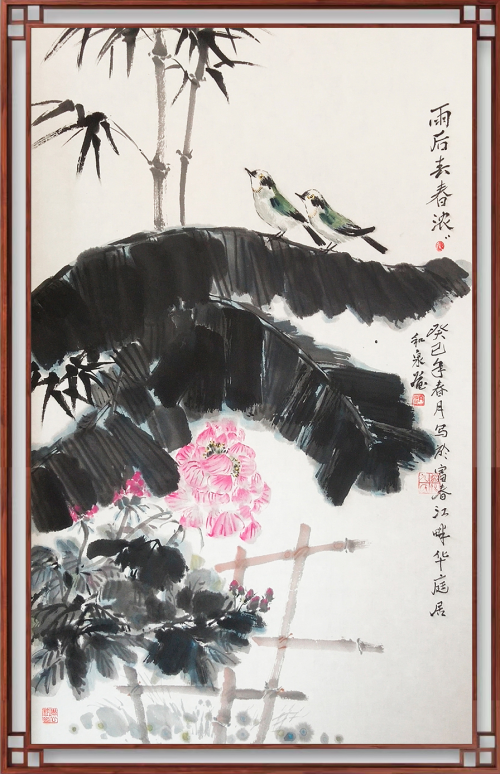 雨后春浓
癸巳年春月写於富春江畔华庭居
和泉